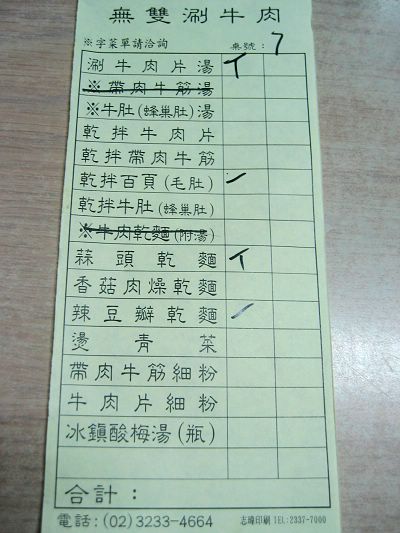 無雙涮牛肉
※字菜單請洽詢 桌號：7
涮牛肉片湯 丅
※帶肉牛筋湯
※牛肚(蜂巢肚)湯
乾拌牛肉片
乾拌帶肉牛筋
乾拌百頁(毛肚) 一
乾拌牛肚(蜂巢肚)
※牛肉乾麵(附湯)
蒜頭乾麵 丅
香菇肉燥乾麵
辣豆瓣乾麵 一
燙青菜
帶肉牛筋細粉
牛肉片細粉
冰鎮酸梅湯(瓶)
合計：
電話：(02)3233-4664 志瑋印刷 TEL:2337-7000